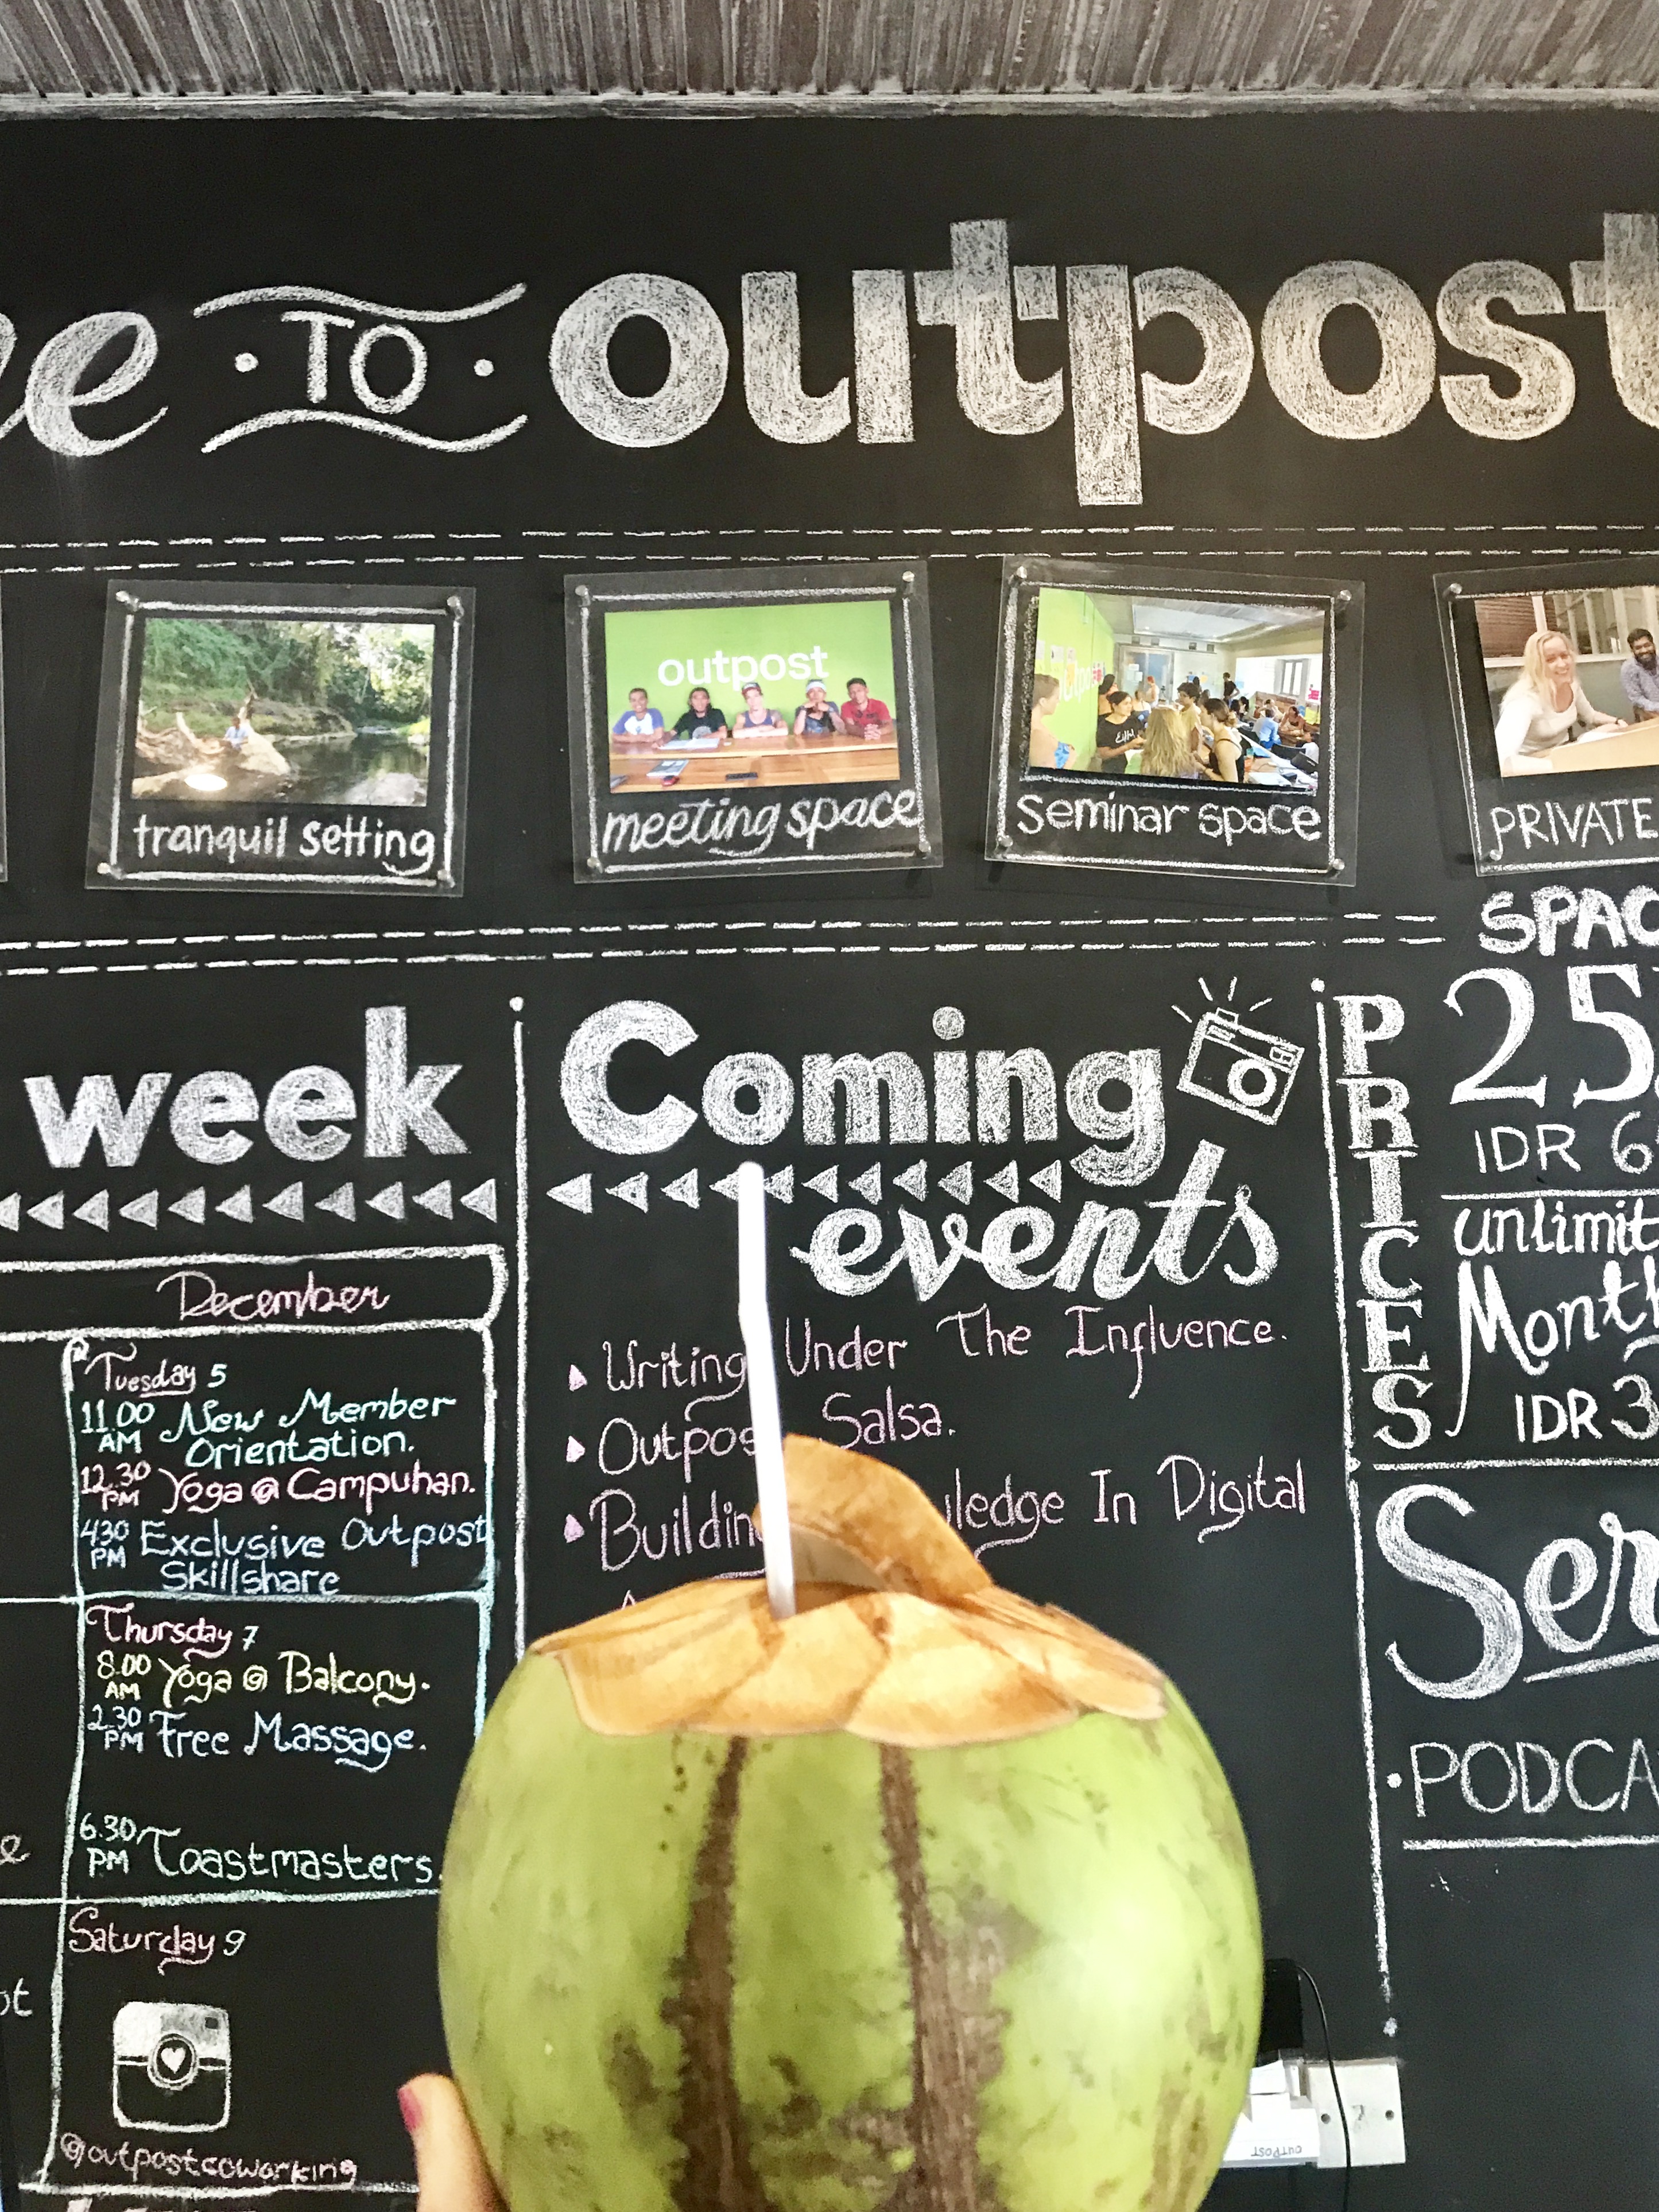 TO outpost
outpost
tranquil setting
meeting space
seminar space
PRIVATE
week
December
Tuesday 5
11.00 AM New Member Orientation.
12.30 PM Yoga @ Campuhan.
4.30 PM Exclusive Outpost
Skillshare
Thursday 7
8.00 AM Yoga @ Balcony.
2.30 PM Free Massage.
6.30 PM Toastmasters.
Saturday 9
@outpostcoworking
Coming
events
Writing Under The Influence.
Salsa.
In Digital
PRICES
25
IDR 6
Month
IDR 3
OUTPOST